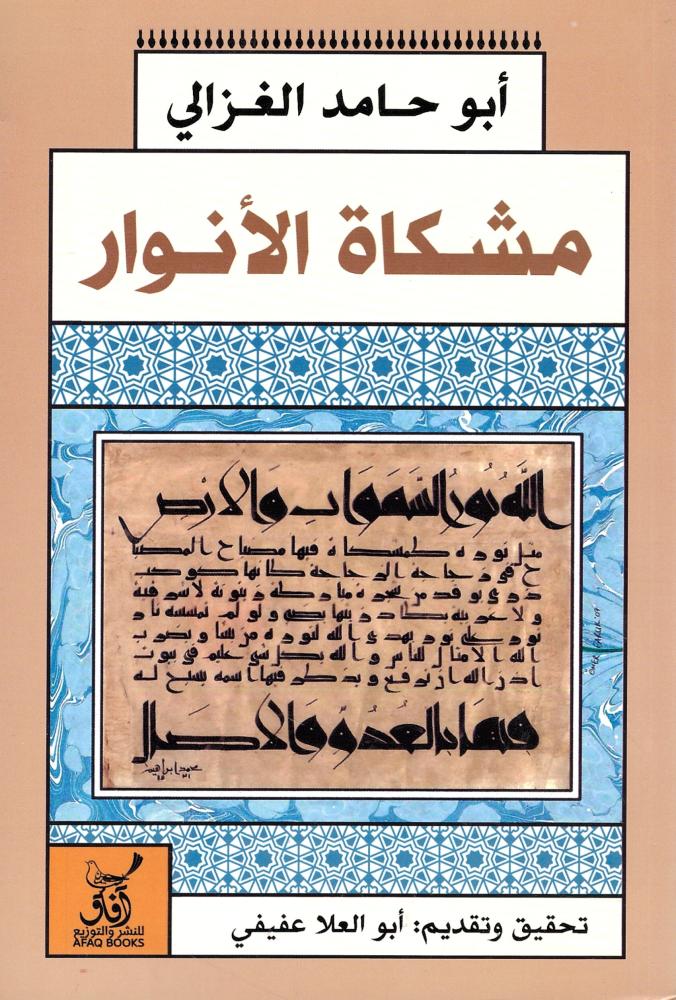 أبو حامد الغزالي
مشكاة الأنوار
الله نُورُ السَّمَوَاتِ وَالأرْضِ
مثل نوره كمشكاة فيها مصباح المصبا
ح في زجاجة الزجاجة كأنها كوكب
دري يوقد من شجرة مباركة زيتونة لا شرقية
ولا غربية يكاد زيتها يضيء ولو لم تمسسه نار
نور على نور يهدي الله لنوره من يشاء ويضرب
الله الأمثال للناس والله بكل شيء عليم في بيوت
أذن الله أن ترفع ويذكر فيها اسمه يسبح له
فيها بالغدو والآصال
محمد ابراهيم
ÖMER FARUK '07
تحقيق وتقديم: أبو العلا عفيفي
آفاق
للنشر والتوزيع
AFAQ BOOKS